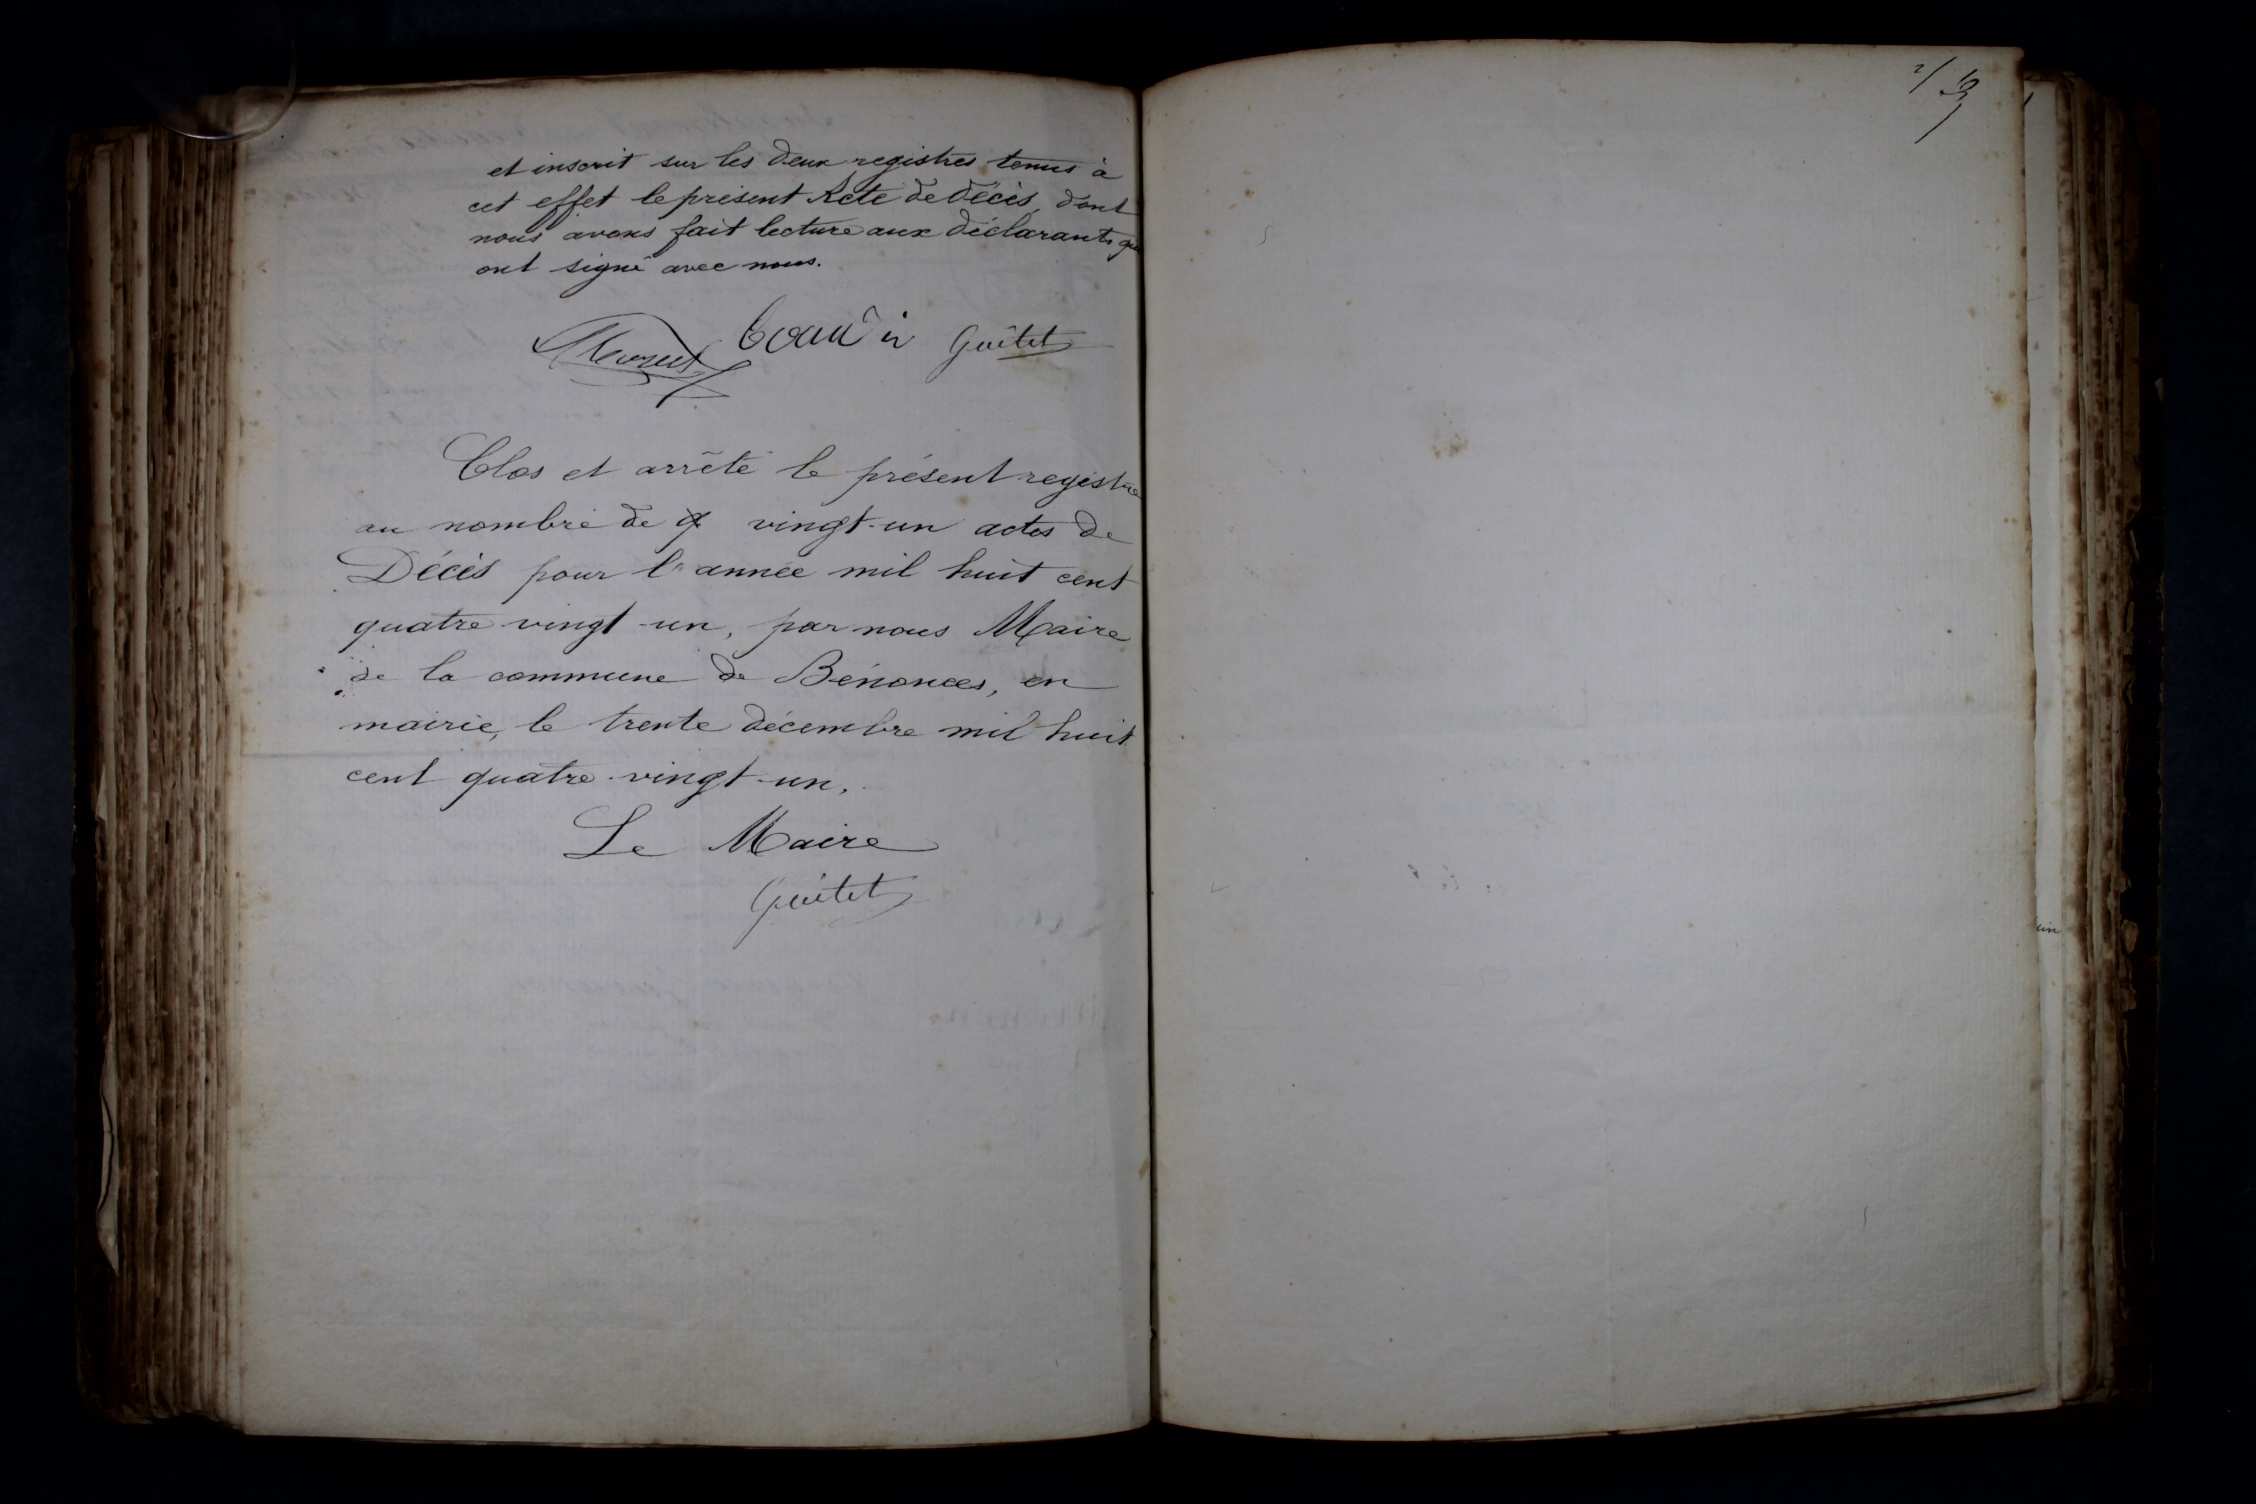 et inscrit sur les deux registres tenus à
cet effet le présent Acte de décès, dont
nous avons fait lecture aux déclarants qui
ont signé avec nous.
Guitet
Clos et arrêté le présent registre
au nombre de vingt-un actes de
Décès pour l'année mil huit cent
quatre vingt-un, par nous Maire
de la commune de Bénonces, en
mairie, le trente décembre mil huit
cent quatre-vingt-un.
Le Maire
Guitet